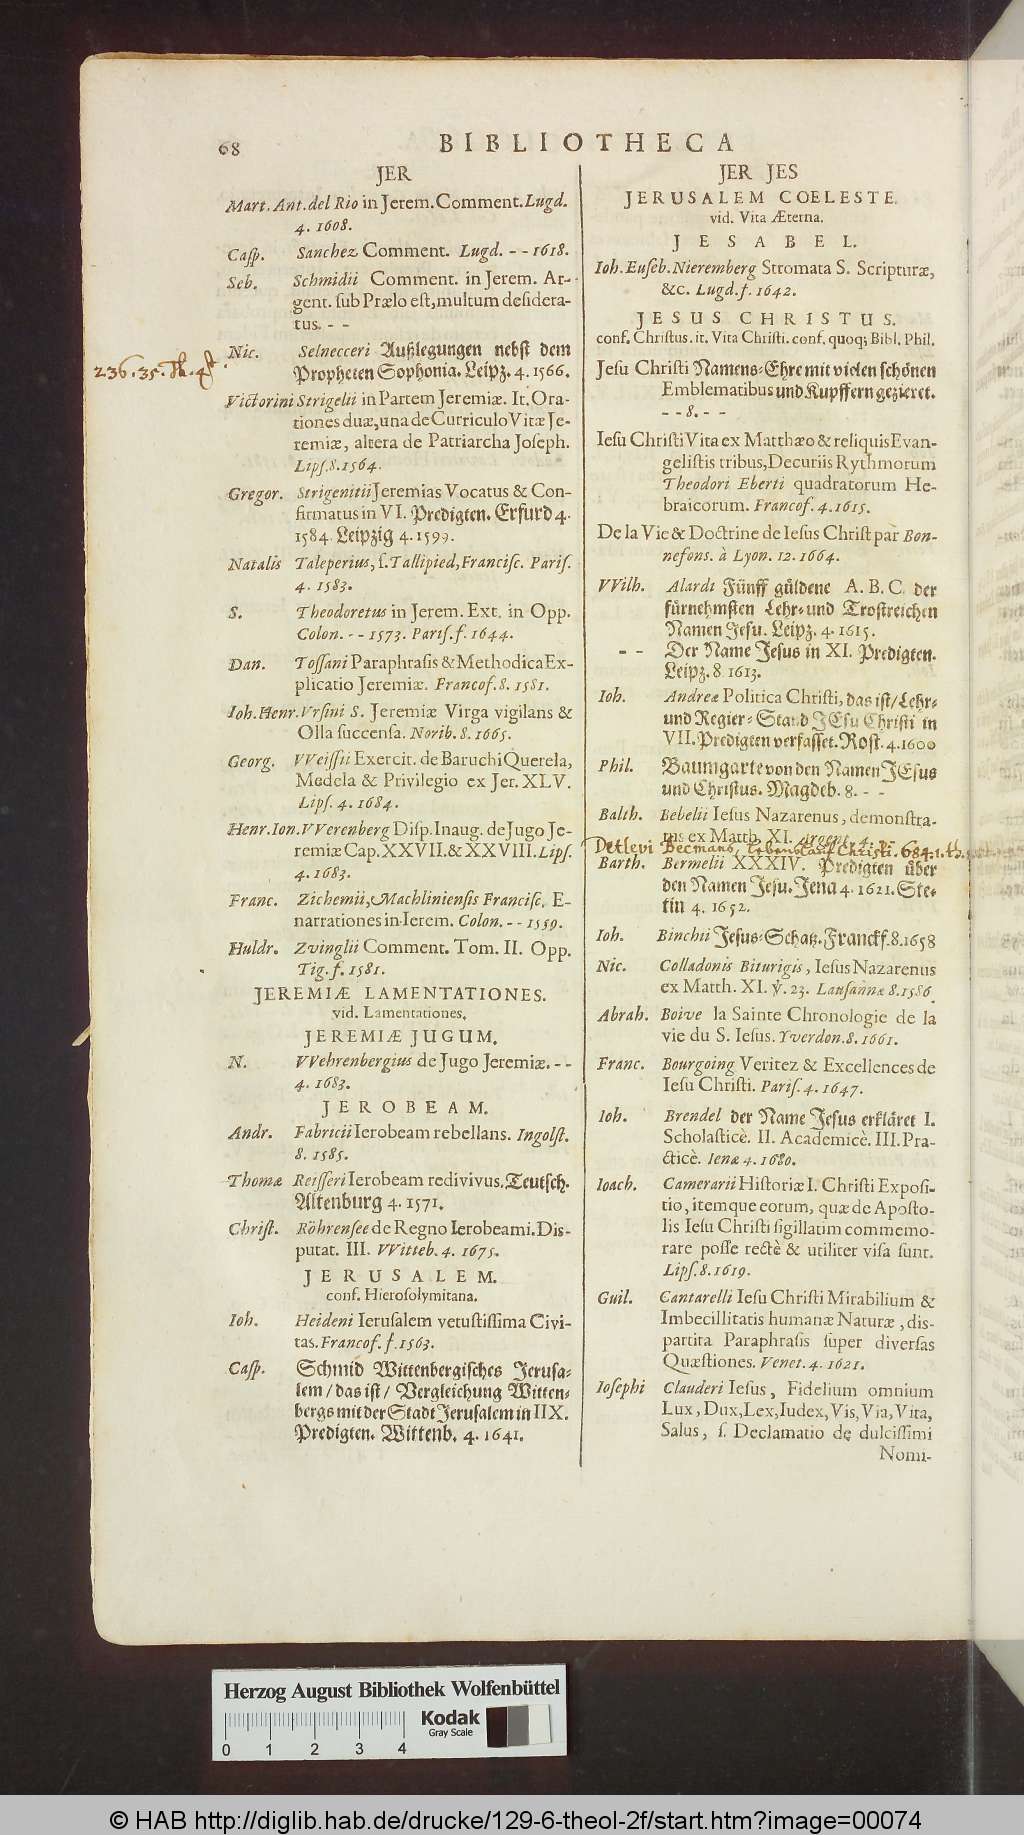 68
BIBLIOTHECA
JER
Mart. Ant. del Rio in Jerem. Comment. Lugd.
4. 1608.
Casp. Sanchez Comment. Lugd. - - 1618.
Seb. Schmidii Comment. in Jerem. Ar-
gent. sub Prælo est, multum desidera-
tus. - -
Nic. Selnecceri Außlegungen nebst dem
236. 35. Th. 4.
Propheten Sophonia. Leipz. 4. 1566.
Victorini Strigelii in Partem Jeremiæ. It. Ora-
tiones duæ, una de Curriculo Vitæ Je-
remiæ, altera de Patriarcha Joseph.
Lips. 8. 1564.
Gregor. Strigenitii Jeremias Vocatus & Con-
firmatus in VI. Predigten. Erfurd 4.
1584. Leipzig 4. 1599.
Natalis Taleperius, s. Tallipied, Francisc. Paris.
4. 1583.
S. Theodoretus in Jerem. Ext. in Opp.
Colon. - - 1573. Paris. f. 1644.
Dan. Tossani Paraphrasis & Methodica Ex-
plicatio Jeremiæ. Francof. 8. 1581.
Ioh. Henr. Vrsini S. Jeremiæ Virga vigilans &
Olla succensa. Norib. 8. 1665.
Georg. VVeissii Exercit. de Baruchi Querela,
Medela & Privilegio ex Jer. XLV.
Lips. 4. 1684.
Henr. Ion. VVerenberg Disp. Inaug. de Jugo Je-
remiæ Cap. XXVII. & XXVIII. Lips.
4. 1683.
Franc. Zichemii, Machliniensis Francisc. E-
narrationes in Ierem. Colon. - - 1559.
Huldr. Zvinglii Comment. Tom. II. Opp.
Tig. f. 1581.
JEREMIÆ LAMENTATIONES.
vid. Lamentationes.
JEREMIÆ JUGUM.
N. VVehrenbergius de Jugo Jeremiæ. - -
4. 1683.
JEROBEAM.
Andr. Fabricii Ierobeam rebellans. Ingolst.
8. 1585.
Thomæ Reisseri Ierobeam redivivus. Teutsch.
Altenburg 4. 1571.
Christ. Röhrensee de Regno Ierobeami. Dis-
putat. III. VVitteb. 4. 1675.
JERUSALEM.
conf. Hierosolymitana.
Ioh. Heideni Ierusalem vetustissima Civi-
tas. Francof. f. 1563.
Casp. Schmid Wittenbergisches Jerusa-
lem / das ist / Vergleichung Witten-
bergs mit der Stadt Jerusalem in IIX.
Predigten. Wittenb. 4. 1641.
JER JES
JERUSALEM COELESTE.
vid. Vita Æterna.
JESABEL.
Ioh. Euseb. Nieremberg Stromata S. Scripturæ,
&c. Lugd. f. 1642.
JESUS CHRISTUS.
conf. Christus. it. Vita Christi. conf. quoq; Bibl. Phil.
Jesu Christi Namens-Ehre mit vielen schönen
Emblematibus und Kupffern gezieret.
- - 8. - -
Iesu Christi Vita ex Matthæo & reliquis Evan-
gelistis tribus, Decuriis Rythmorum
Theodori Eberti quadratorum He-
braicorum. Francof. 4. 1615.
De la Vie & Doctrine de Iesus Christ par Bon-
nefons. à Lyon. 12. 1664.
VVilh. Alardi Fünff güldene A. B. C. der
fürnehmsten Lehr- und Trostreichen
Namen Jesu. Leipz. 4. 1615.
- - Der Name Jesus in XI. Predigten.
Leipz. 8. 1613.
Ioh. Andreæ Politica Christi, das ist / Lehr-
und Regier-Stand JEsu Christi in
VII. Predigten verfasset. Rost. 4. 1600
Phil. Baumgarte von den Namen JEsus
und Christus. Magdeb. 8. - -
Balth. Bebelii Iesus Nazarenus, demonstra-
tus ex Matth. XI. Argent. 4.
Detlevi Becmans, Lebenslauff Christi. 684. 1. th.
Barth. Bermelii XXXIV. Predigten über
den Namen Jesu. Jena 4. 1621. Ste-
tin 4. 1652.
Ioh. Binchii Jesus-Schatz. Franckf. 8. 1658
Nic. Colladonis Biturigis, Iesus Nazarenus
ex Matth. XI. ℣. 23. Lausannæ 8. 1586.
Abrah. Boive la Sainte Chronologie de la
vie du S. Iesus. Yverdon. 8. 1661.
Franc. Bourgoing Veritez & Excellences de
Iesu Christi. Paris. 4. 1647.
Ioh. Brendel der Name Jesus erkläret I.
Scholasticè. II. Academicè. III. Pra-
cticè. Ienæ 4. 1680.
Ioach. Camerarii Historiæ I. Christi Exposi-
tio, itemque eorum, quæ de Aposto-
lis Iesu Christi sigillatim commemo-
rare posse rectè & utiliter visa sunt.
Lips. 8. 1619.
Guil. Cantarelli Iesu Christi Mirabilium &
Imbecillitatis humanæ Naturæ, dis-
partita Paraphrasis super diversas
Quæstiones. Venet. 4. 1621.
Iosephi Clauderi Iesus, Fidelium omnium
Lux, Dux, Lex, Iudex, Vis, Via, Vita,
Salus, s. Declamatio de dulcissimi
Nomi-
Herzog August Bibliothek Wolfenbüttel
Kodak
Gray Scale
0 1 2 3 4
© HAB http://diglib.hab.de/drucke/129-6-theol-2f/start.htm?image=00074